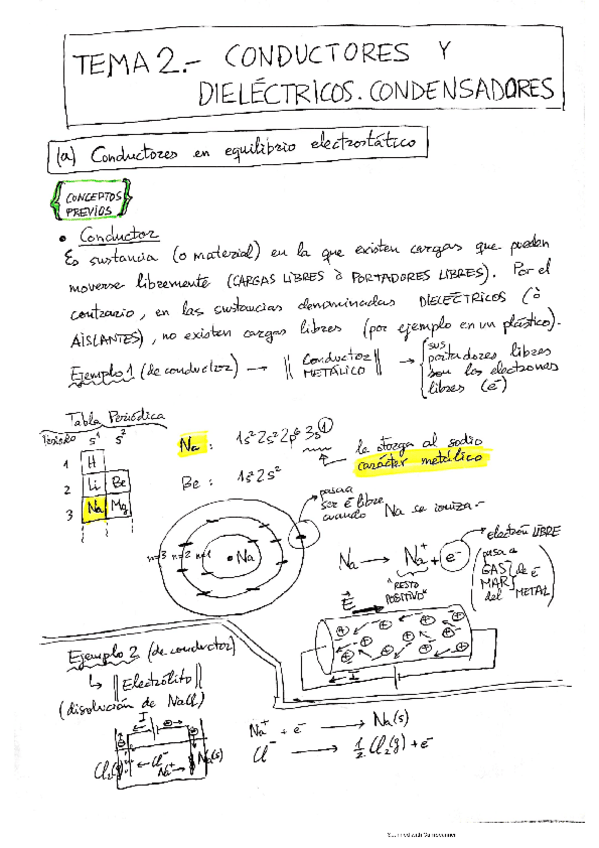 TEMA 2.- CONDUCTORES Y
DIELÉCTRICOS. CONDENSADORES
(a) Conductores en equilibrio electrostático
CONCEPTOS
PREVIOS
• Conductor
Es sustancia (o material) en la que existen cargas que pueden
moverse libremente (CARGAS LIBRES ò PORTADORES LIBRES). Por el
contrario, en las sustancias denominadas DIELÉCTRICOS (ò
AISLANTES), no existen cargas libres (por ejemplo en un plástico).
Ejemplo 1 (de conductor) → || Conductor METÁLICO || → { sus
portadores libres
son los electrones
libres (e⁻)
Tabla Periódica
Período s¹ s²
1 H
2 Li Be
3 Na Mg
Na : 1s² 2s² 2p⁶ 3s¹
le otorga al sodio
carácter metálico
Be : 1s² 2s²
pasará a
ser e⁻ libre
cuando Na se ioniza.-
n=3 n=2 n=1 • Na
Na → Na⁺ + e⁻
electrón LIBRE
(pasa a
GAS } de e⁻
MAR }
del METAL)
"RESTO
POSITIVO"
E⃗
I
Ejemplo 2 (de conductor)
↳ || Electrólito ||
(disolución de NaCl)
I
Cl₂(g) ← Cl⁻ Na⁺ → Na(s)
Na⁺ + e⁻ → Na(s)
Cl⁻ → ½ Cl₂(g) + e⁻